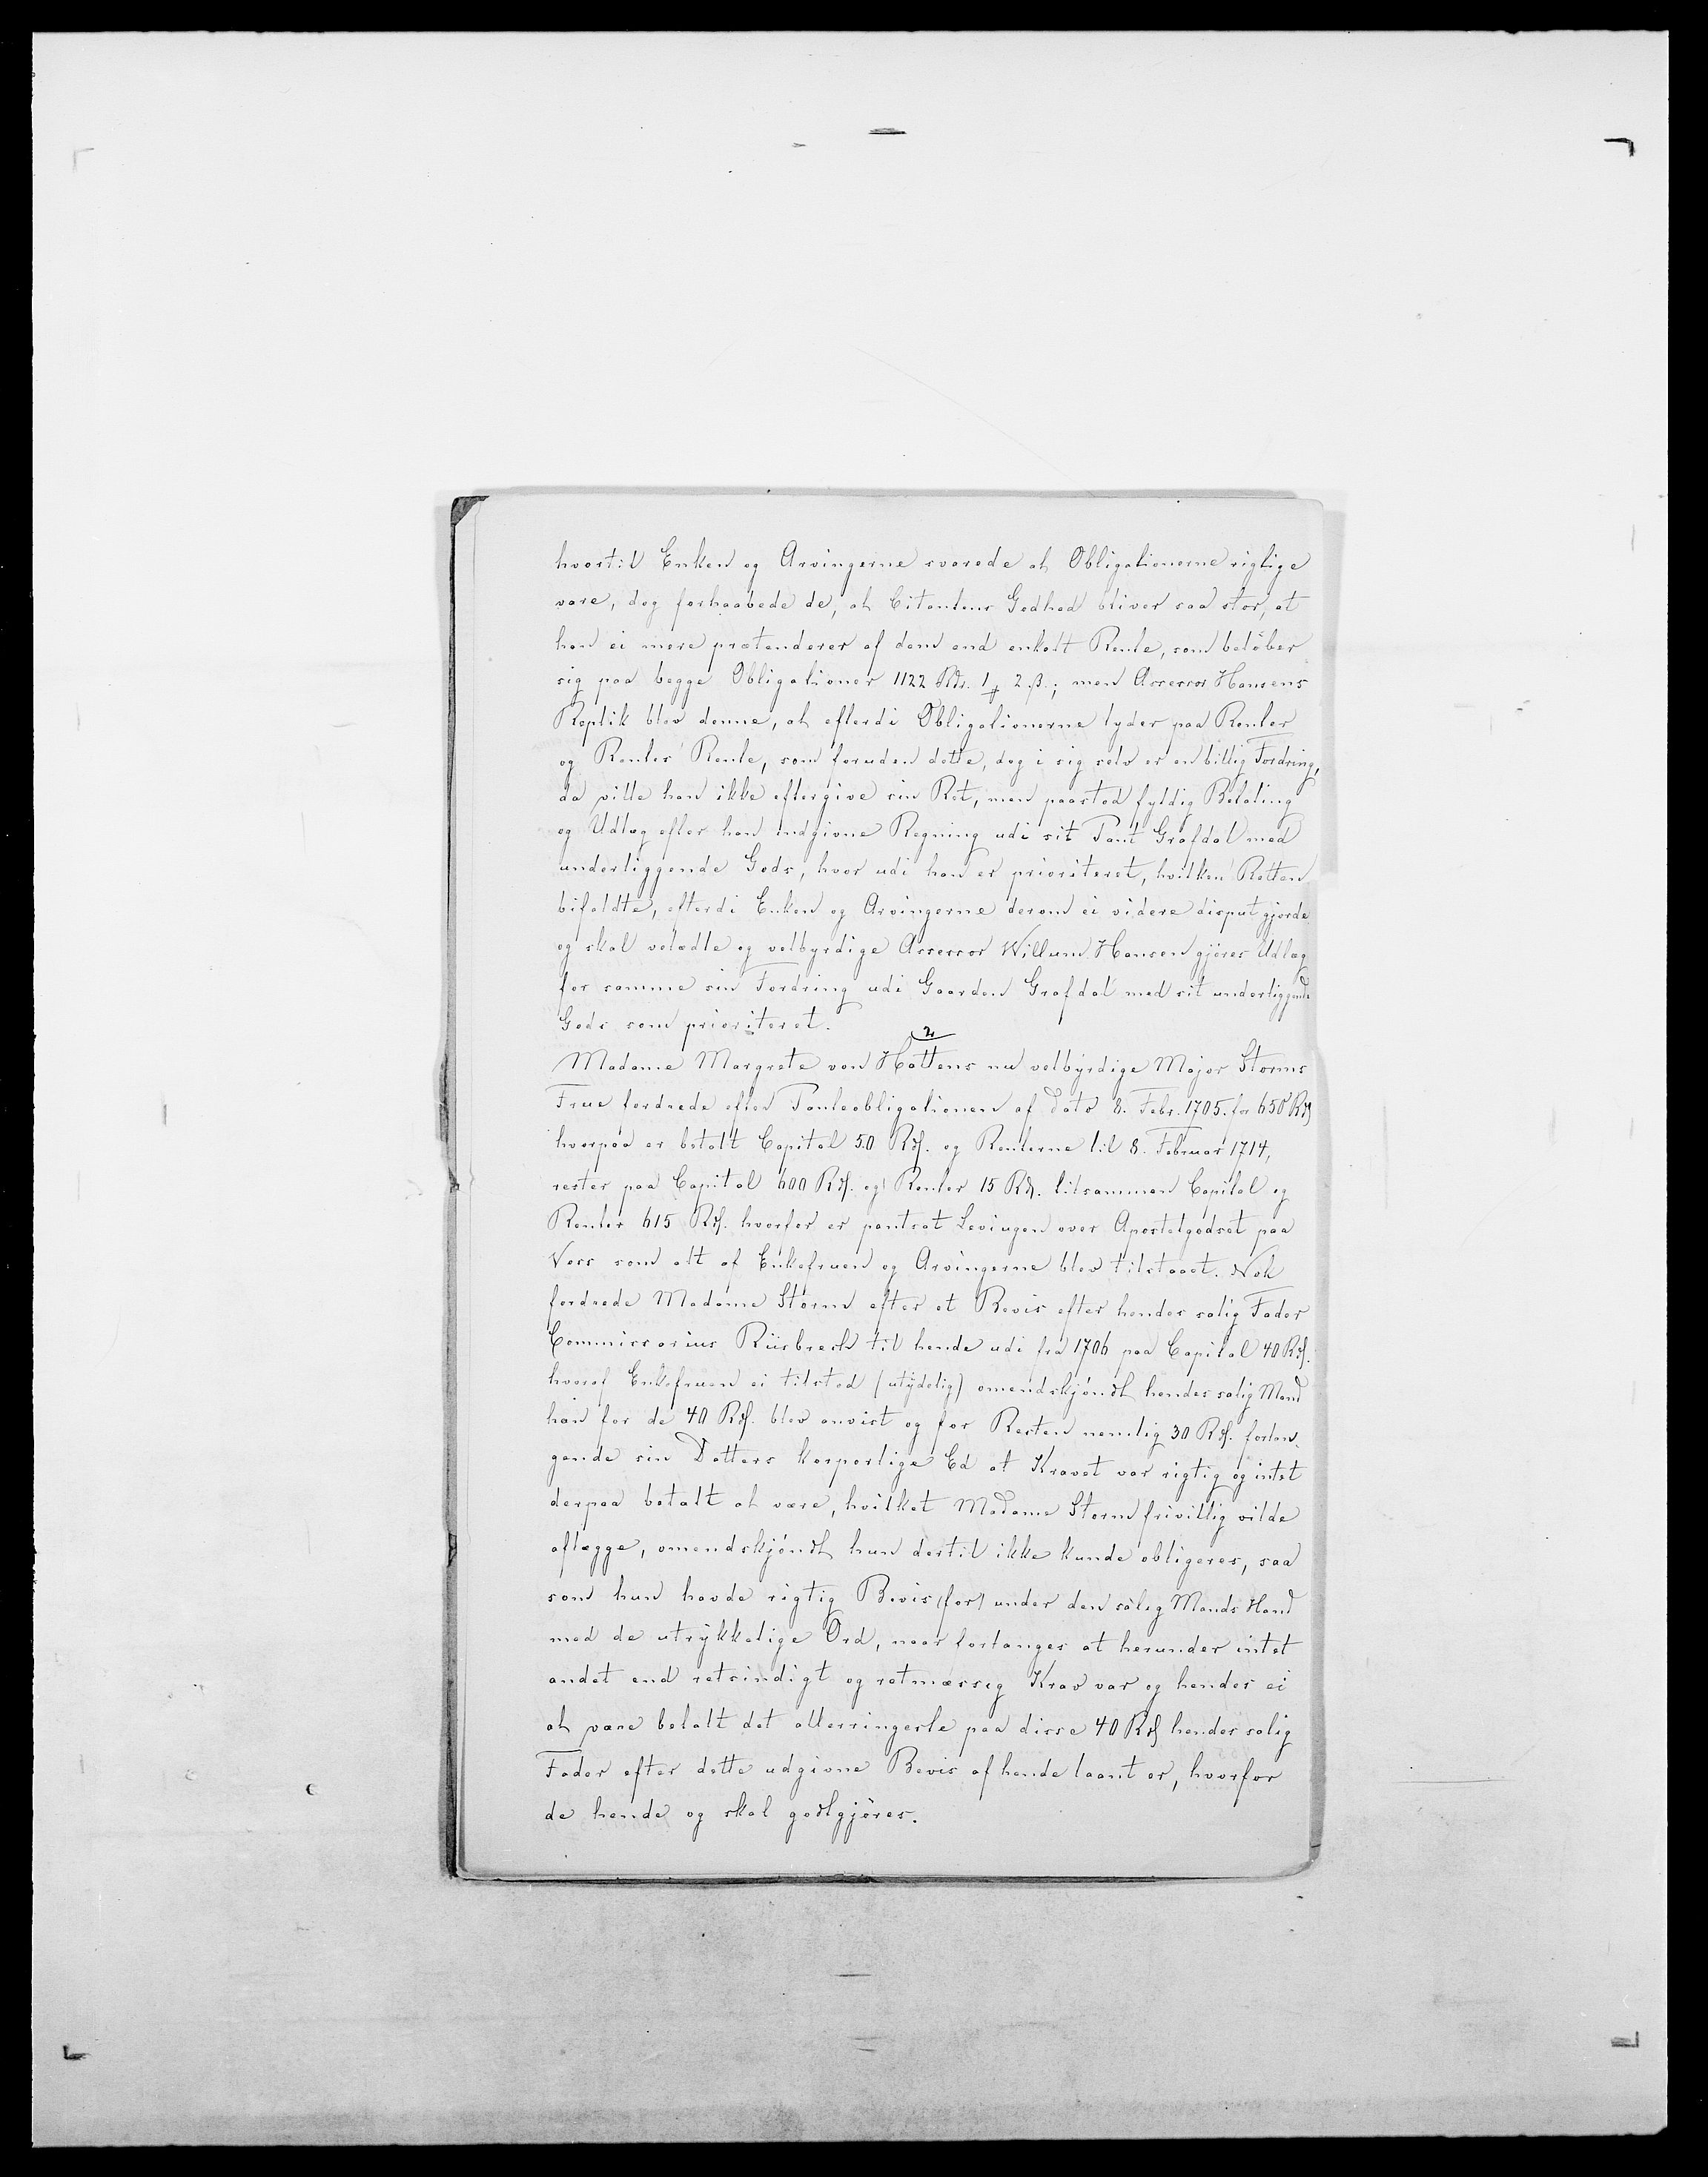 hvortil Enken og Arvingerne svarede at Obligationerne rigtige
vare, dog forhaabede de, at Citantens Godhed bliver saa stor, at
han ei mere prætenderer af dem end enkelt Rente, som beløber
sig paa begge Obligationer 1122 Rdr. 1 ƒ 2 ß.; men Assessor Hansens
Replik blev denne, at efterdi Obligationerne lyder paa Renter
og Renters Rente, som foruden dette, dog i sig selv er en billig Fordring,
da ville han ikke eftergive sin Ret, men paastod fyldig Betaling
og Udlæg efter han indgivne Regning udi sit Pant Grafdal med
underliggende Gods, hvor udi han er prioriteret, hvilken Retten
bifaldte, efterdi Enken og Arvingerne derom ei videre disput gjorde
og skal velædle og velbyrdige Assessor Willum Hansen gjøres Udlæg
for samme sin Fordring udi Gaarden Grafdal med sit underliggende
Gods som prioriteret.
2
Madame Margrete von Hattens nu velbyrdige Major Storms
Frue fordrede efter Panteobligationen af Dato 8. Febr. 1705. for 650 Rdl
hvorpaa er betalt Capital 50 Rdl. og Renterne til 8. Februar 1714,
rester paa Capital 600 Rdl. og Renter 15 Rdl. tilsammen Capital og
Renter 615 Rdl. hvorfor er pantsat Levingen over Apostelgodset paa
Voss som alt af Enkefruen og Arvingerne blev tilstaaet. Nok
fordrede Madame Storm efter et Bevis efter hendes salig Fader
Commissarius Riisbrech til hende udi fra 1706 paa Capital 40 Rdl.
hvoraf Enkefruen ei tilstod (utydelig) omendskjøndt hendes salig Mand
han for de 40 Rdl. blev anvist og for Resten nemlig 30 Rdl. forlan-
gende sin Datters korporlige Ed at Kravet var rigtig og intet
derpaa betalt at være, hvilket Madame Storm frivillig vilde
aflægge, omendskjøndt hun dertil ikke kunde obligeres, saa
som hun havde rigtig Bevis (for) under den salig Mands Haand
med de utrykkelige Ord, naar forlanges at herunder intet
andet end retsindigt og retmæssig Krav var og hendes ei
at være betalt det allerringeste paa disse 40 Rdl hendes salig
Fader efter dette udgivne Bevis af hende laant er, hvorfor
de hende og skal godtgjøres.